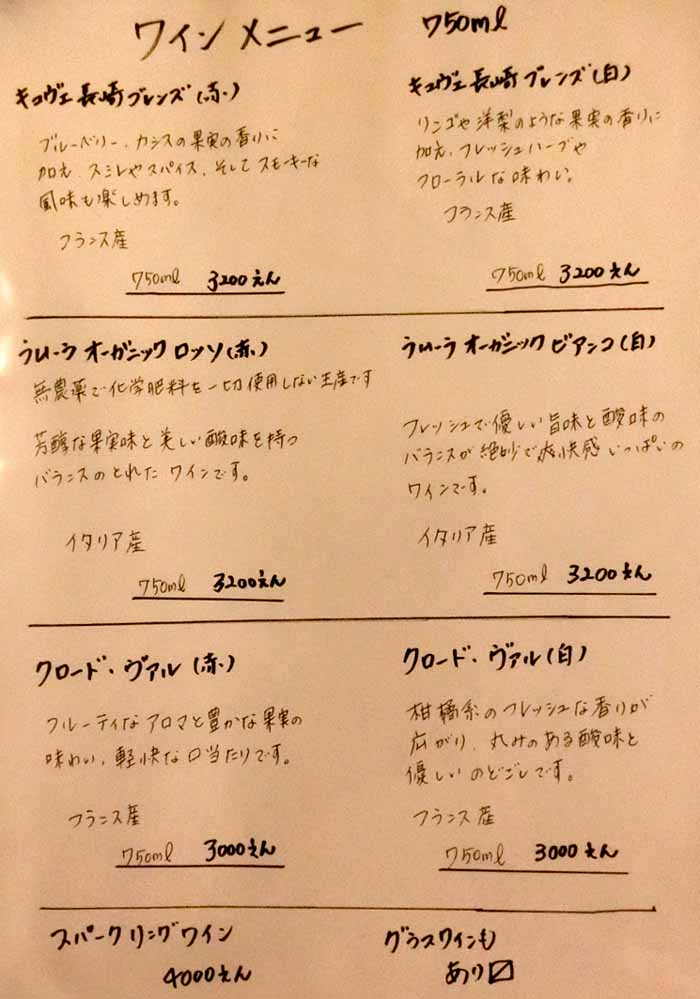 ワイン メニュー 750ml
キュヴェ 長崎 ブレンズ (赤)
ブルーベリー、カシスの果実の香りに
加え、スミレやスパイス、そして スモーキーな
風味も楽しめます。
フランス産
750ml 3200えん
キュヴェ 長崎 ブレンズ (白)
リンゴや洋梨のような果実の香りに
加え、フレッシュハーブや
フローラルな味わい。
フランス産
750ml 3200えん
うぃーラ オーガニック ロッソ(赤)
無農薬で化学肥料を一切使用しない生産です
芳醇な果実味と美しい酸味を持つ
バランスのとれた ワインです。
イタリア産
750ml 3200えん
うぃーラ オーガニック ビアンコ(白)
フレッシュで優しい旨味と酸味の
バランスが絶妙で爽快感いっぱいの
ワインです。
イタリア産
750ml 3200えん
クロード・ヴァル(赤)
フルーティなアロマと豊かな果実の
味わい、軽快な口当たりです。
フランス産
750ml 3000えん
クロード・ヴァル(白)
柑橘系のフレッシュな香りが
広がり、丸みのある酸味と
優しいのどごしです。
フランス産
750ml 3000えん
スパークリングワイン
4000えん
グラスワインも
あり〼